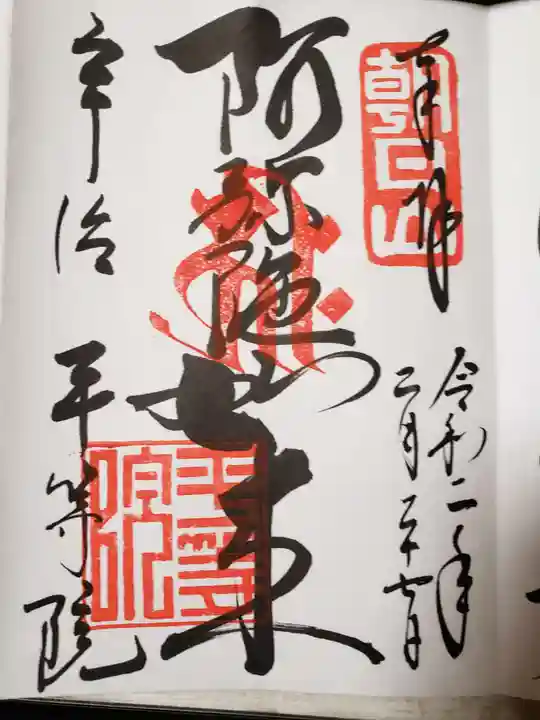 奉拝
朝日山
令和二年
二月二十七日
阿弥陀如来
宇治 平等院